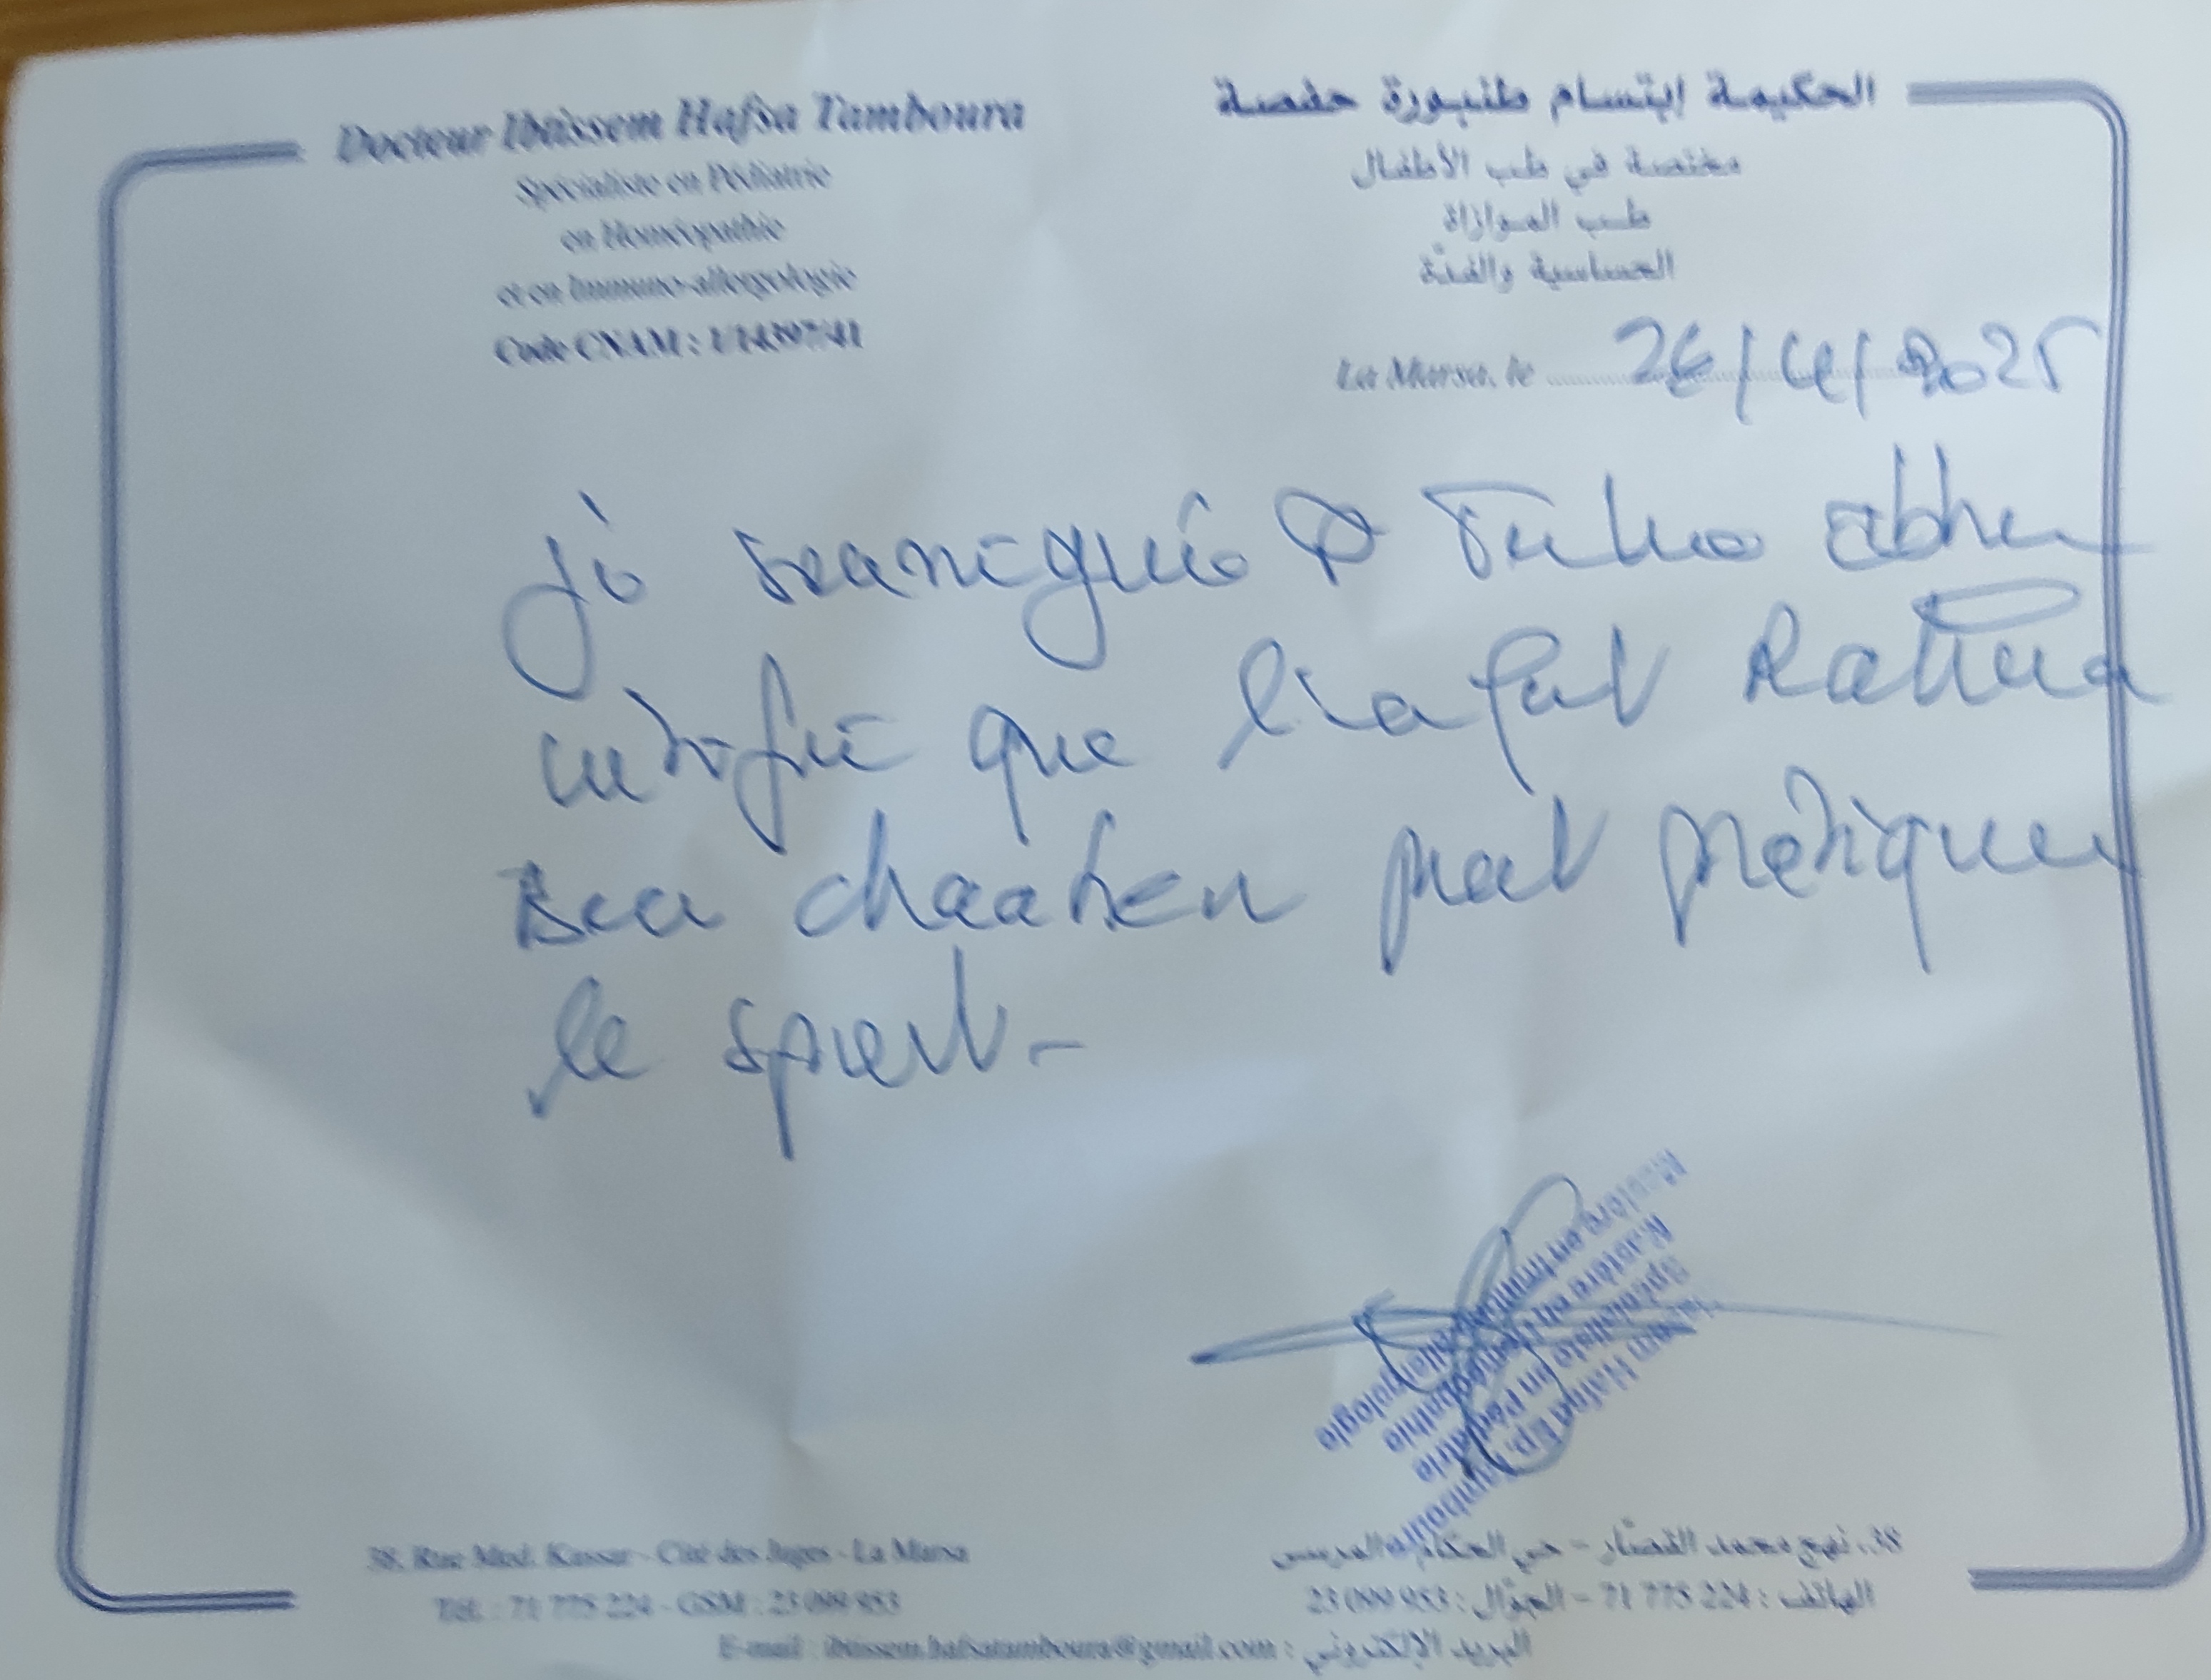 Docteur Ibtissem Hafsa Tamboura
Spécialiste en Pédiatrie
en Homéopathie
et en Immuno-allergologie
Code CNAM : 1/14397/41
الحكيمة إبتسام طنبورة حفصة
مختصة في طب الأطفال
طب الموازاة
الحساسية والفدّة
La Marsa, le 26/4/2025
je
que Rahma
Ben chaaben peut pratiquer
le sport -
Hafsa Ep. Tamboura
Spécialiste en Pédiatrie
en Homéopathie
38, Rue Med. Kassar - Cité des Juges - La Marsa
Tél. : 71 775 224 - GSM : 23 099 953
38، نهج محمد القصّار - حي الحكام المرسى
الهاتف : 224 775 71 - الجوّال : 953 099 23
E-mail : ibtissem.hafsatamboura@gmail.com : البريد الإلكتروني